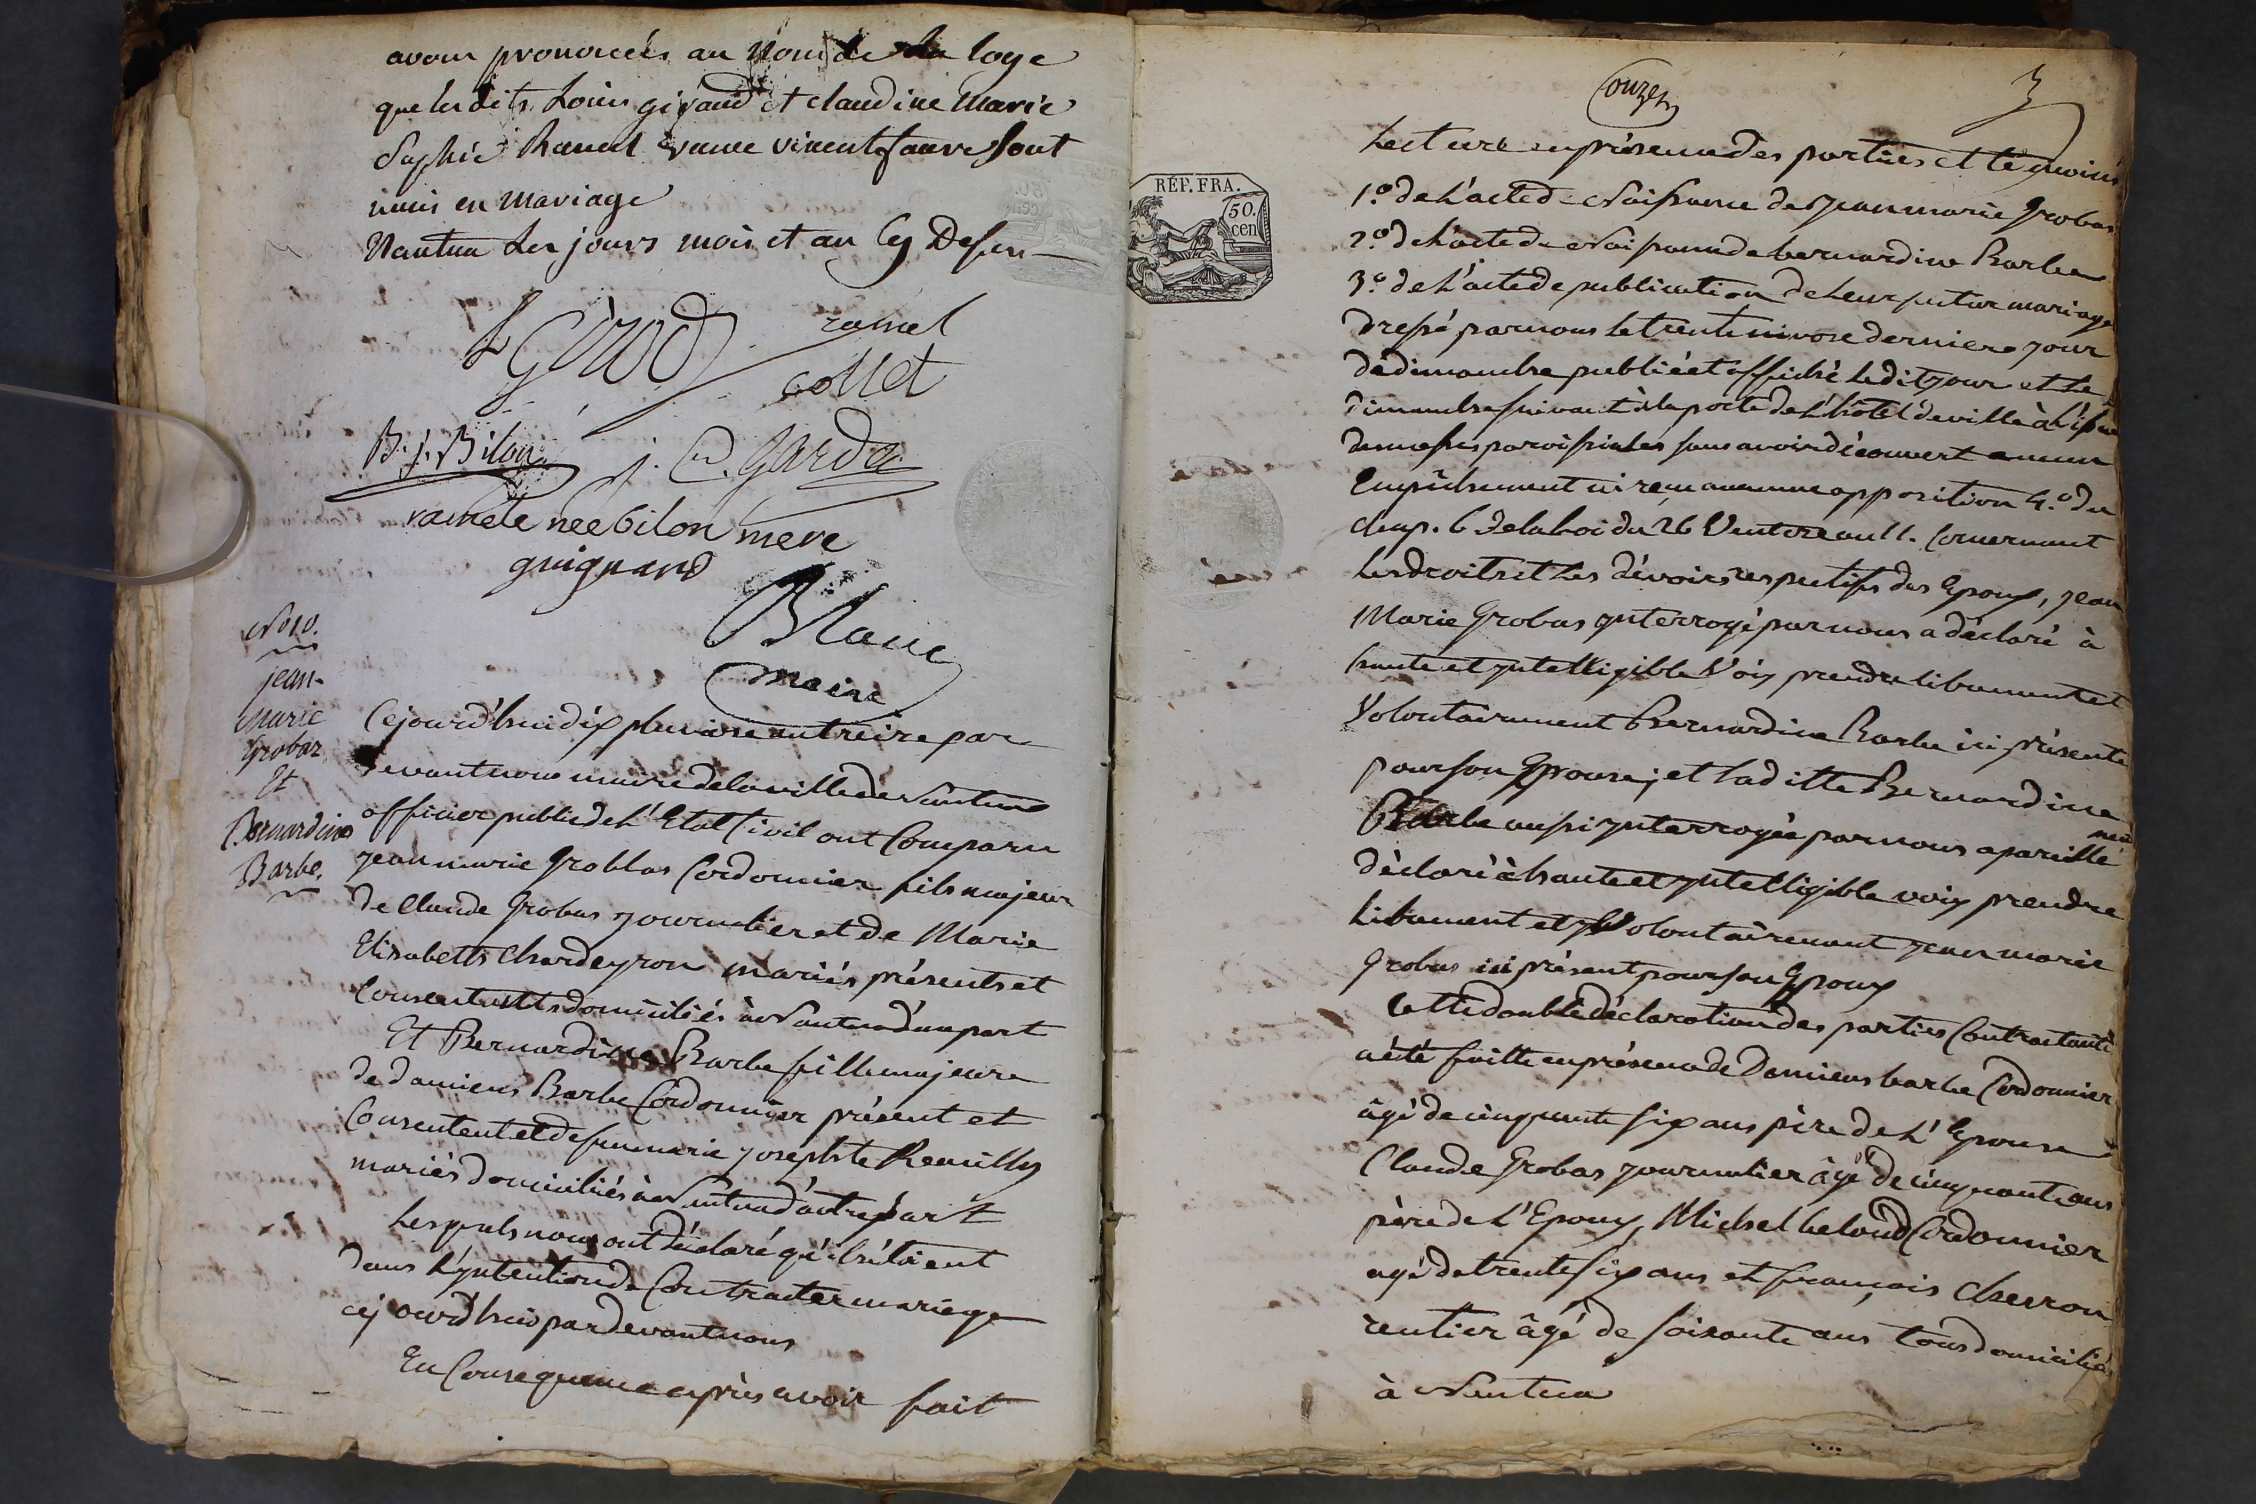 avoir prononcés au Nom de la loy
que lesdits Louis giraud et claudine Marie
Sophie Ramel veuve vincent faure sont
unis en mariage
Nantua Les jours mois et an cy Dessus
L Girod
ramel
collet
B. j. Bilon
j. C. Garda
ramele nee bilon mere
guignard
Blanc
maire
No 10.
jean-
Marie
Grobaz
Et
Bernardine
Barbe.
Cejourd'huidix pluviose an treize par
devant nous maire de la ville de Nantua
officier public de L'Etat Civil ont Comparu
jean marie Groblas Cordonnier fils majeur
de Claude Grobas journalier et de Marie
Elisabeth Chardeyron mariés présents et
Consentants domiciliés à Nantua d'une part
Et Bernardine Barbe fille majeure
de damiens Barbe Cordonnier présent et
Consentent et de feu marie josephte Reuilly
mariés domiciliés à Nantua d'autre part
Lesquels nous ont Déclaré qu'ils étoient
dans L'yntention de Contracter mariage
cejourd'hui par devant nous
En Consequence après avoir fait
Couzer
3
Lecture en présence des parties et témoins
1.° de L'acte de Naissance de jean marie Grobas
2.° de L'acte de Naissance de bernardine Barbe
3.° de L'acte de publication de Leur futur mariage
Dressé par nous le trente nivose dernier jour
de dimanche publié et affiché Ledit jour et Le
dimanche suivant à la porte de L'hôtel de ville à L'issue
des messes paroissiales sans avoir découvert aucun
Empêchement ni reçu aucune opposition 4.° du
chap. 6 de la Loi du 26 Ventose an 11. Concernant
Les droits et Les dévoirs respectifs des Epoux, jean
Marie Grobas ynterrogé par nous a déclaré à
haute et yntelligible Voix prendre librement et
Volontairement Bernardine Barbe ici présente
pour son Epouse; et laditte Bernardine
Barbe aussi ynterrogée par nous a pareille
ment
déclaré à haute et yntelligible voix prendre
Librement et Volontairement jean marie
Grobas ici présent pour son Epoux
Cette double déclaration des parties Contractante
a été faitte en présence de Damiens barbe Cordonnier
âgé de cinquante six ans père de L'Epouse
Claude Grobas journalier âgé de cinquante ans
père de L'Epoux, Michel beloud Cordonnier
agé de trente six ans et françois Cherron
rentier âgé de soixante ans, tous domiciliés
à Nantua
RÉP. FRA.
50.
cen